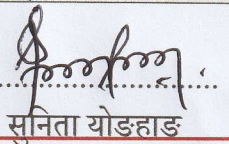 सुनिता योङहाङ